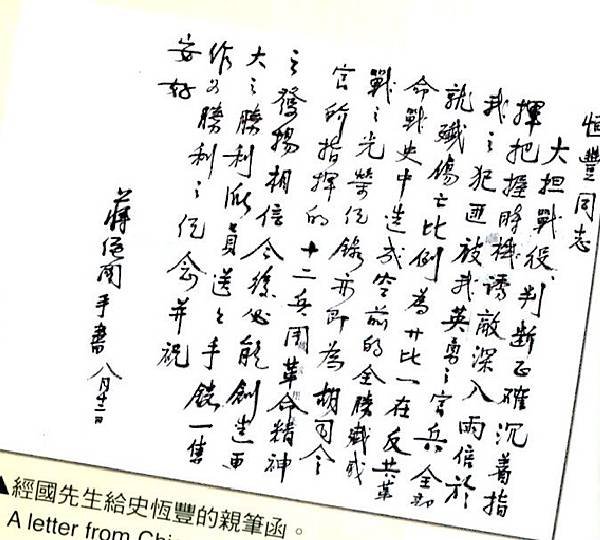 恒豐同志
大担戰役，判斷正確沉着指
揮把握時機誘敵深入兩倍於
我之犯匪被我英勇之官兵全部
就殲傷亡比例為廿比一在反共革
命戰史中造成空前的全勝殲
戰之光榮紀錄亦即為胡司令
官所指揮的十二兵團革命精神
之發揚相信今後必能創造更
大之勝利派員送上手錶一隻
作為勝利之紀念并祝
安好
蔣經國手書 八月十二日
▲經國先生給史恆豐的親筆函。
A letter from Chi